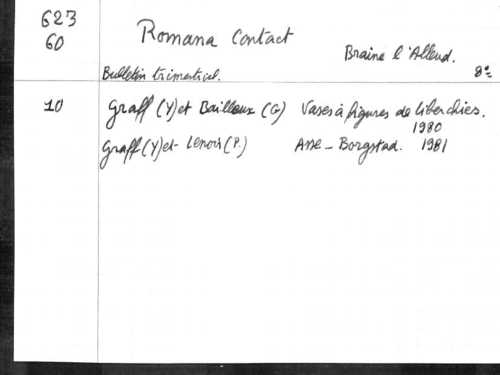 623
60
Romana Contact
Braine l'Alleud.
Bulletin trimestriel. 8°
10 Graff (Y) et Bailleux (G) Vases à figures de liberchies.
1980
Graff (Y) et Lenoir (P.) Asse - Borgstad. 1981